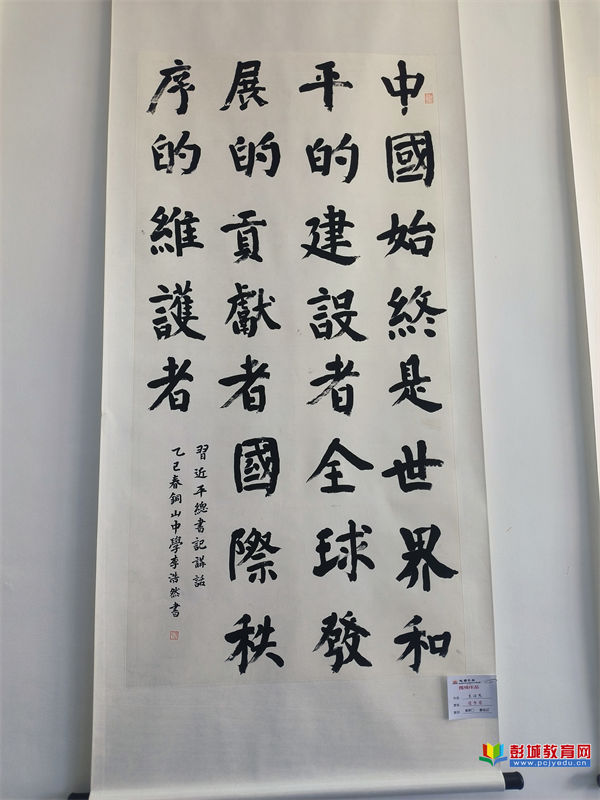 中國始終是世界和
平的建設者全球發
展的貢獻者國際秩
序的維護者
習近平總書記講話
乙巳春銅山中學李浩然書
彭城教育网
www.pcjyedu.cn